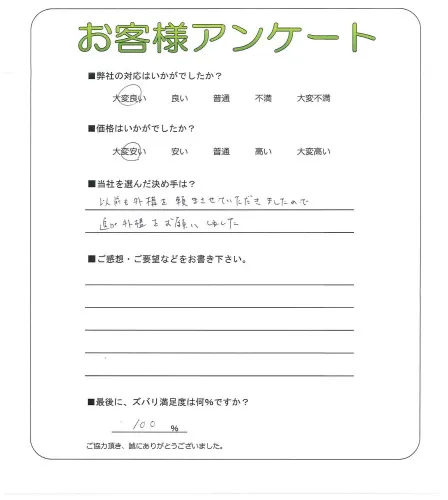 お客様アンケート
■弊社の対応はいかがでしたか？
大変良い 良い 普通 不満 大変不満
■価格はいかがでしたか？
大変安い 安い 普通 高い 大変高い
■当社を選んだ決め手は？
以前も外構を頼まさせていただきましたので
追加外構をお願いしました
■ご感想・ご要望などをお書き下さい。
■最後に、ズバリ満足度は何%ですか？
100 %
ご協力頂き、誠にありがとうございました。